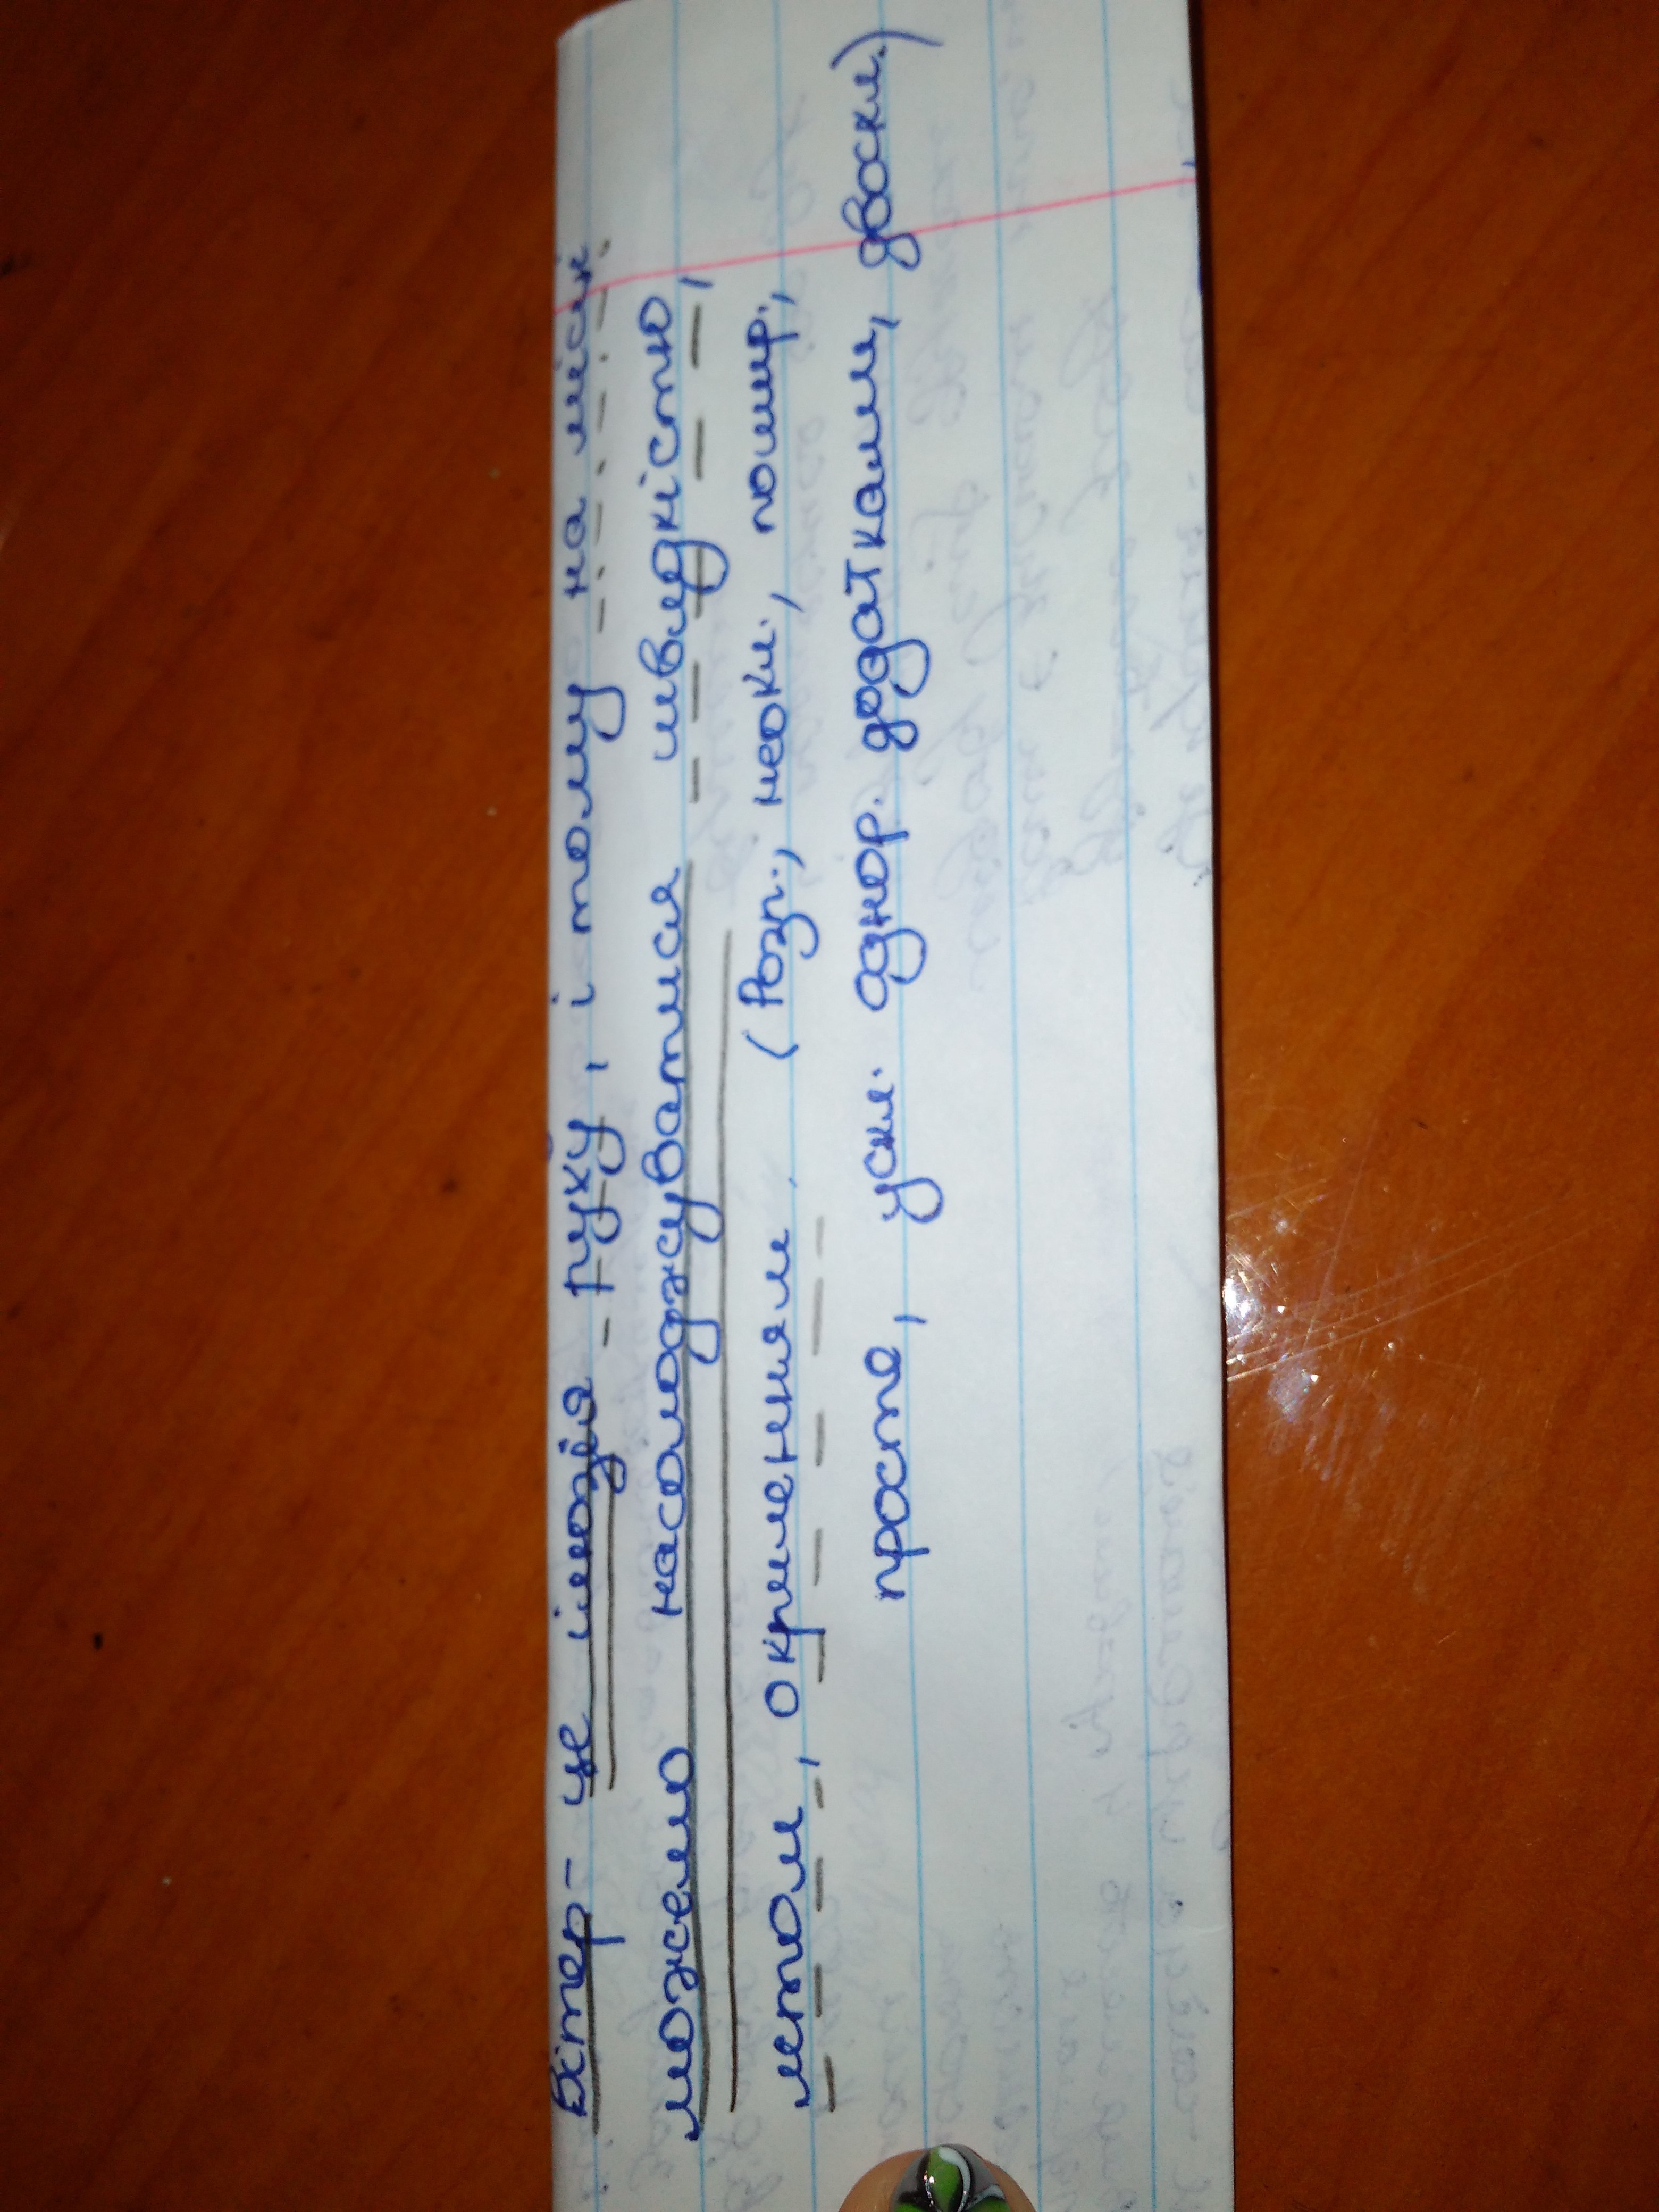 Вітер - це ілюзія руху, і тому на місці
можемо насолоджуватися швидкістю,
летом, окриленням (Розп., неокл., пошир.,
просте, ускл. однор. додатками, двоскл.)